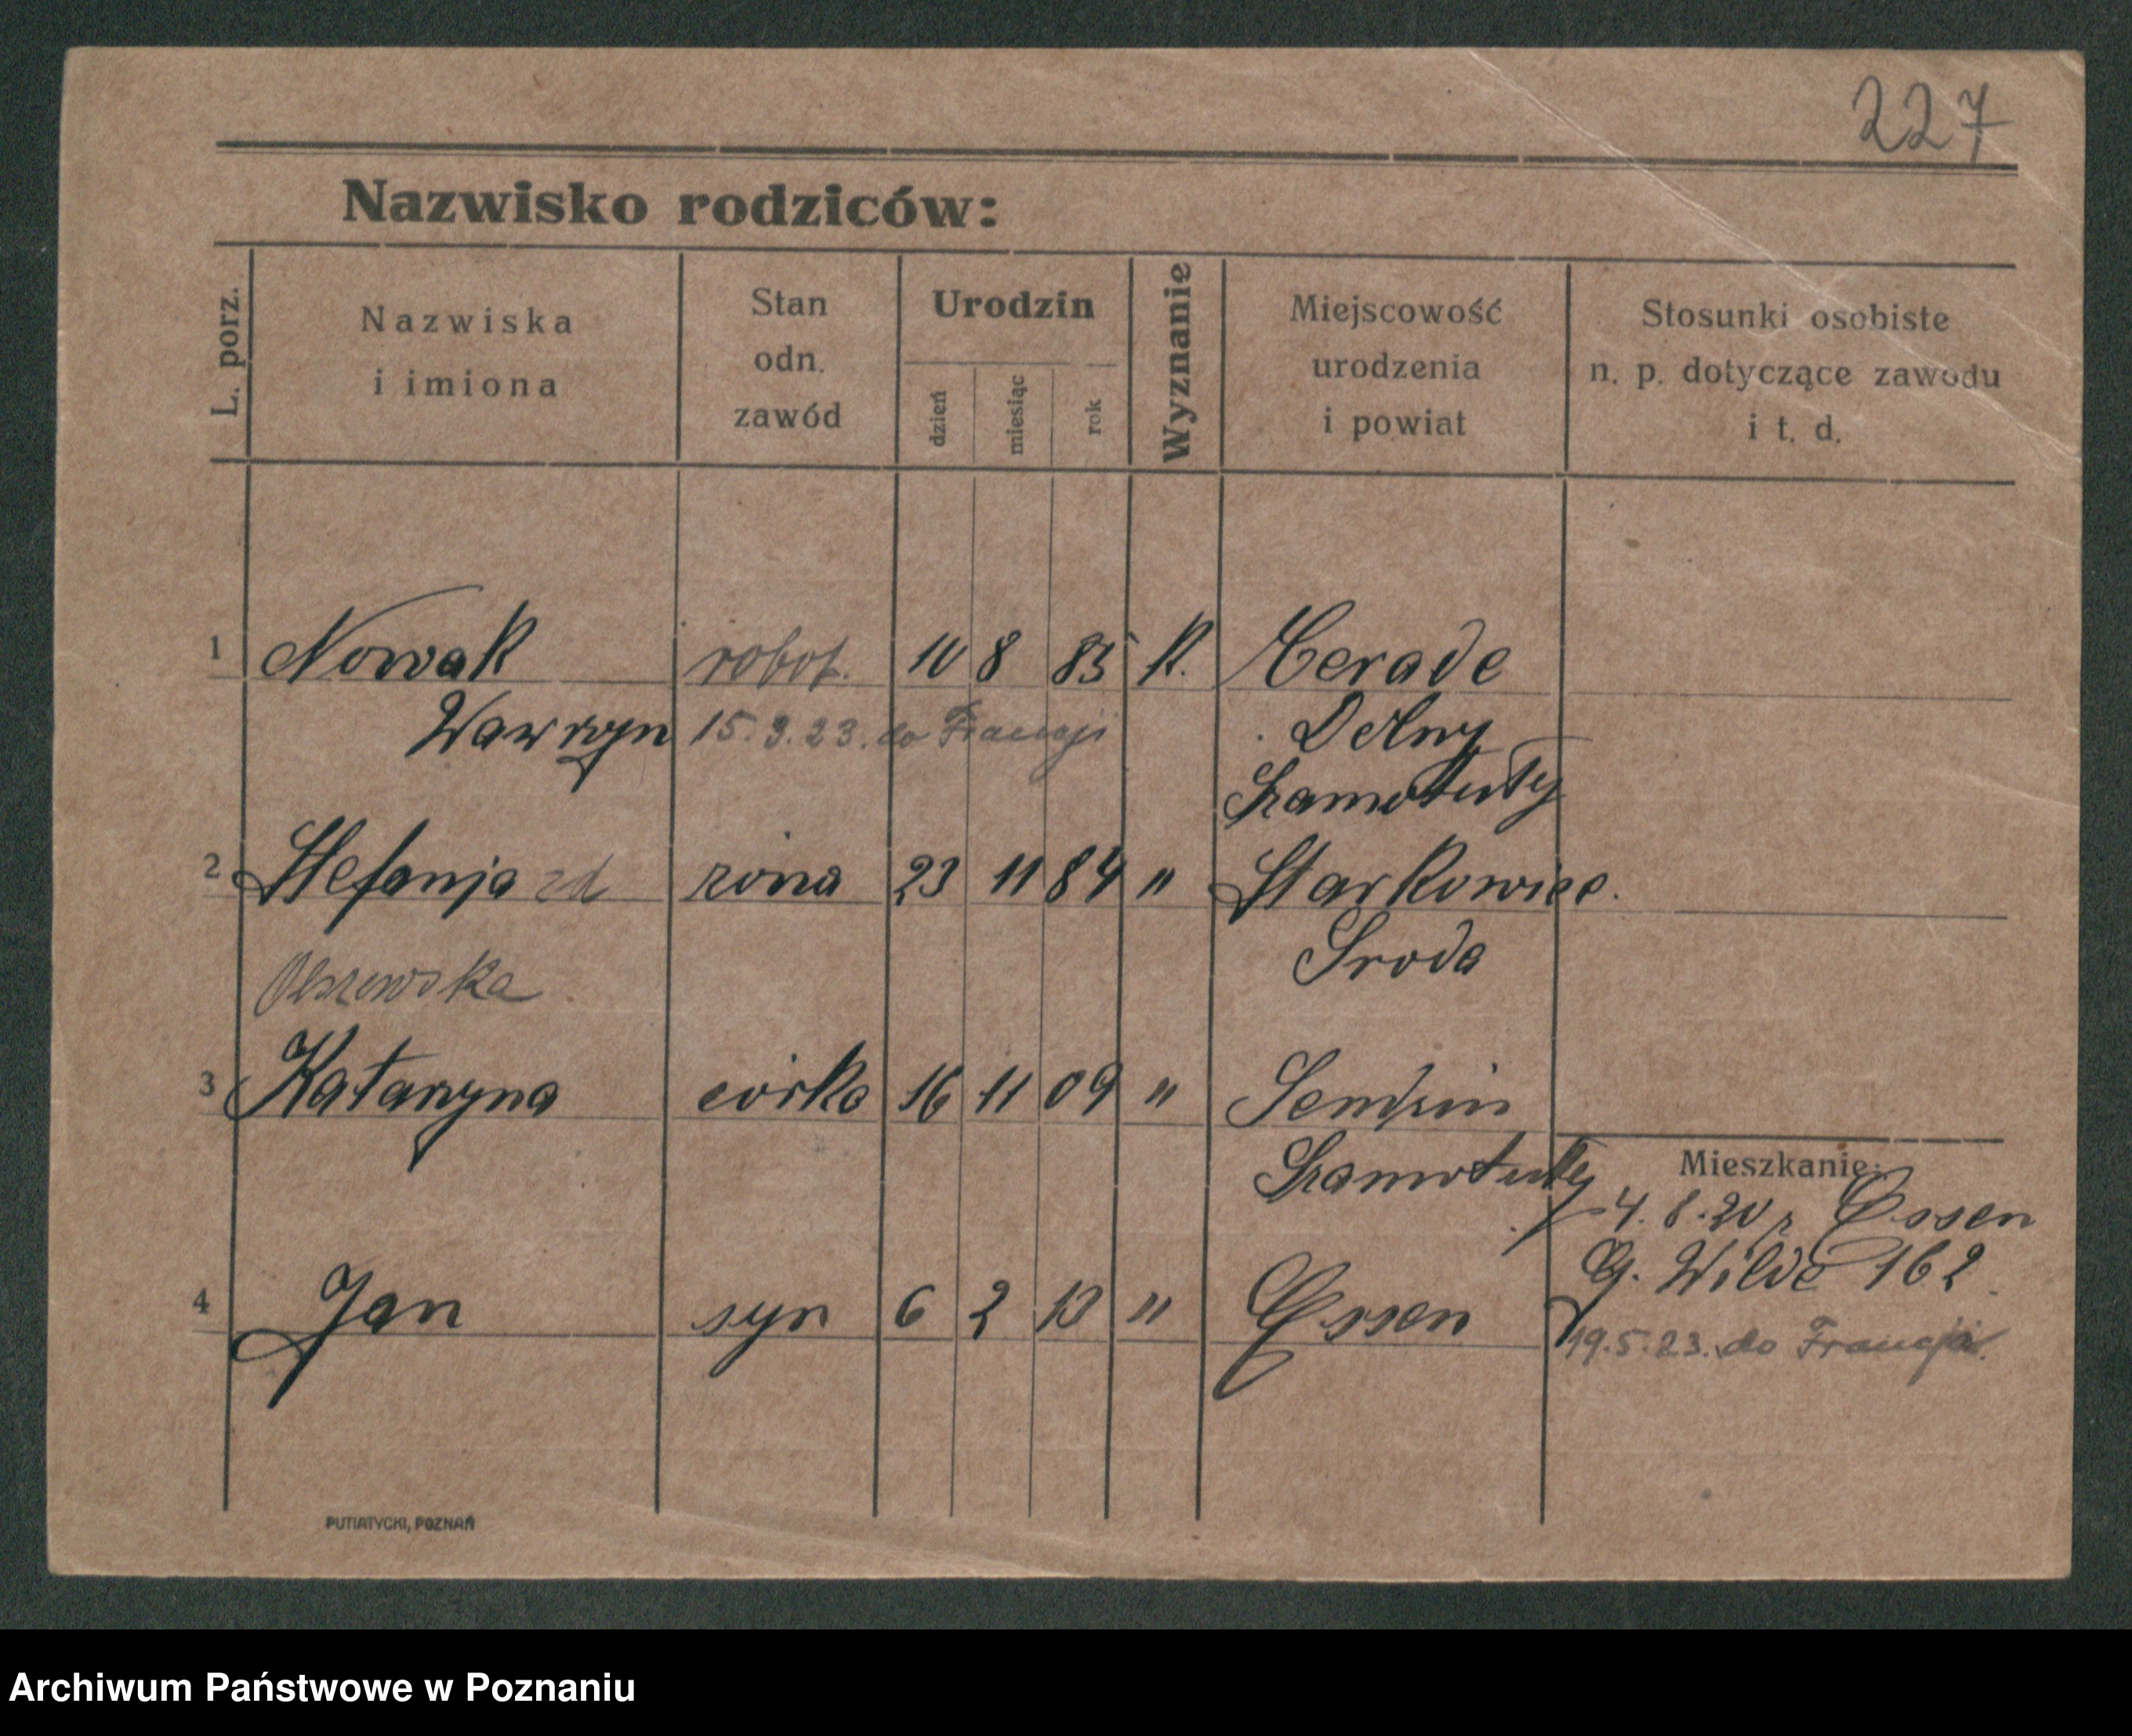 227
Nazwisko rodziców:
L. porz.
Nazwiska
i imiona
Stan
odn.
zawód
Urodzin
dzień
miesiąc
rok
Wyznanie
Miejscowość
urodzenia
i powiat
Stosunki osobiste
n. p. dotyczące zawodu
i t. d.
1 Nowak robot. 10 8 85 K. Cerade
Wawrzyn 15.3.23. do Francji Dolny
Szamotuły
2 Stefanja zd żona 23 11 84 " Starkowiec.
Sroda
Olszewska
3 Katarzyna córka 16 11 09 "
Szamotuły
Mieszkanie:
4.8.20 z Essen
G. Wilde 162.
4 Jan syn 6 2 13 " Essen
19.5.23. do Francji.
PUTIATYCKI, POZNAŃ
Archiwum Państwowe w Poznaniu